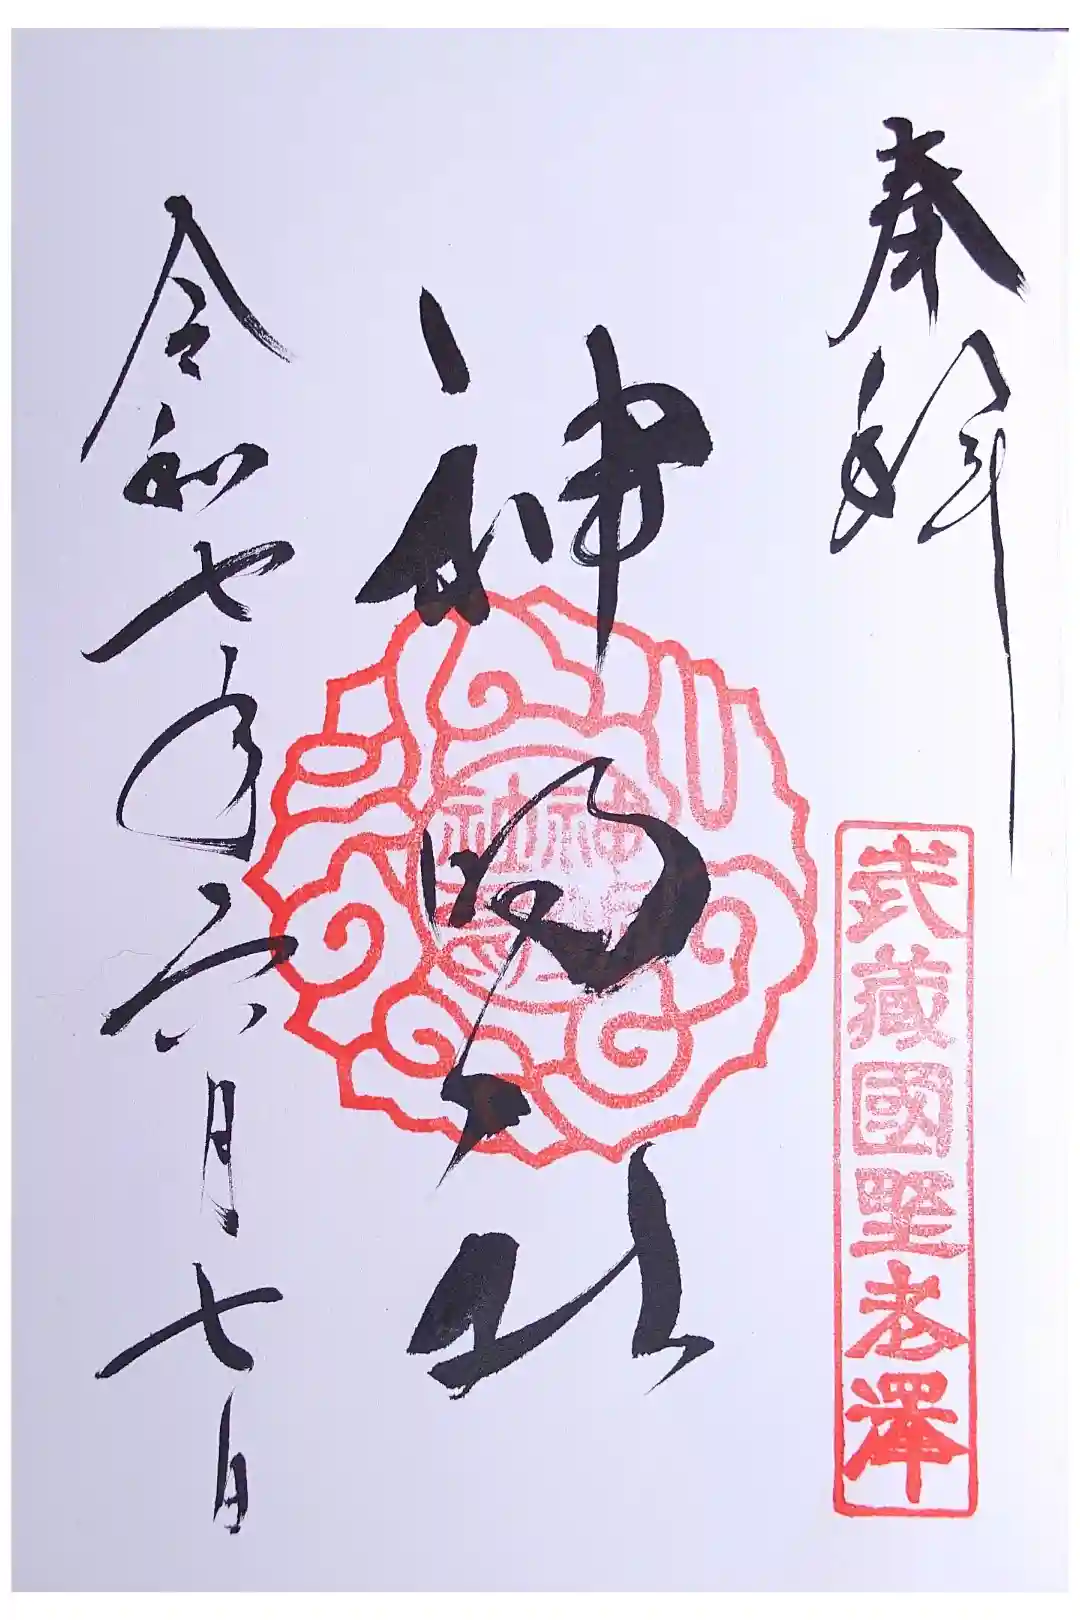 奉拝
武藏國埜老澤
神明社
令和七年六月七日